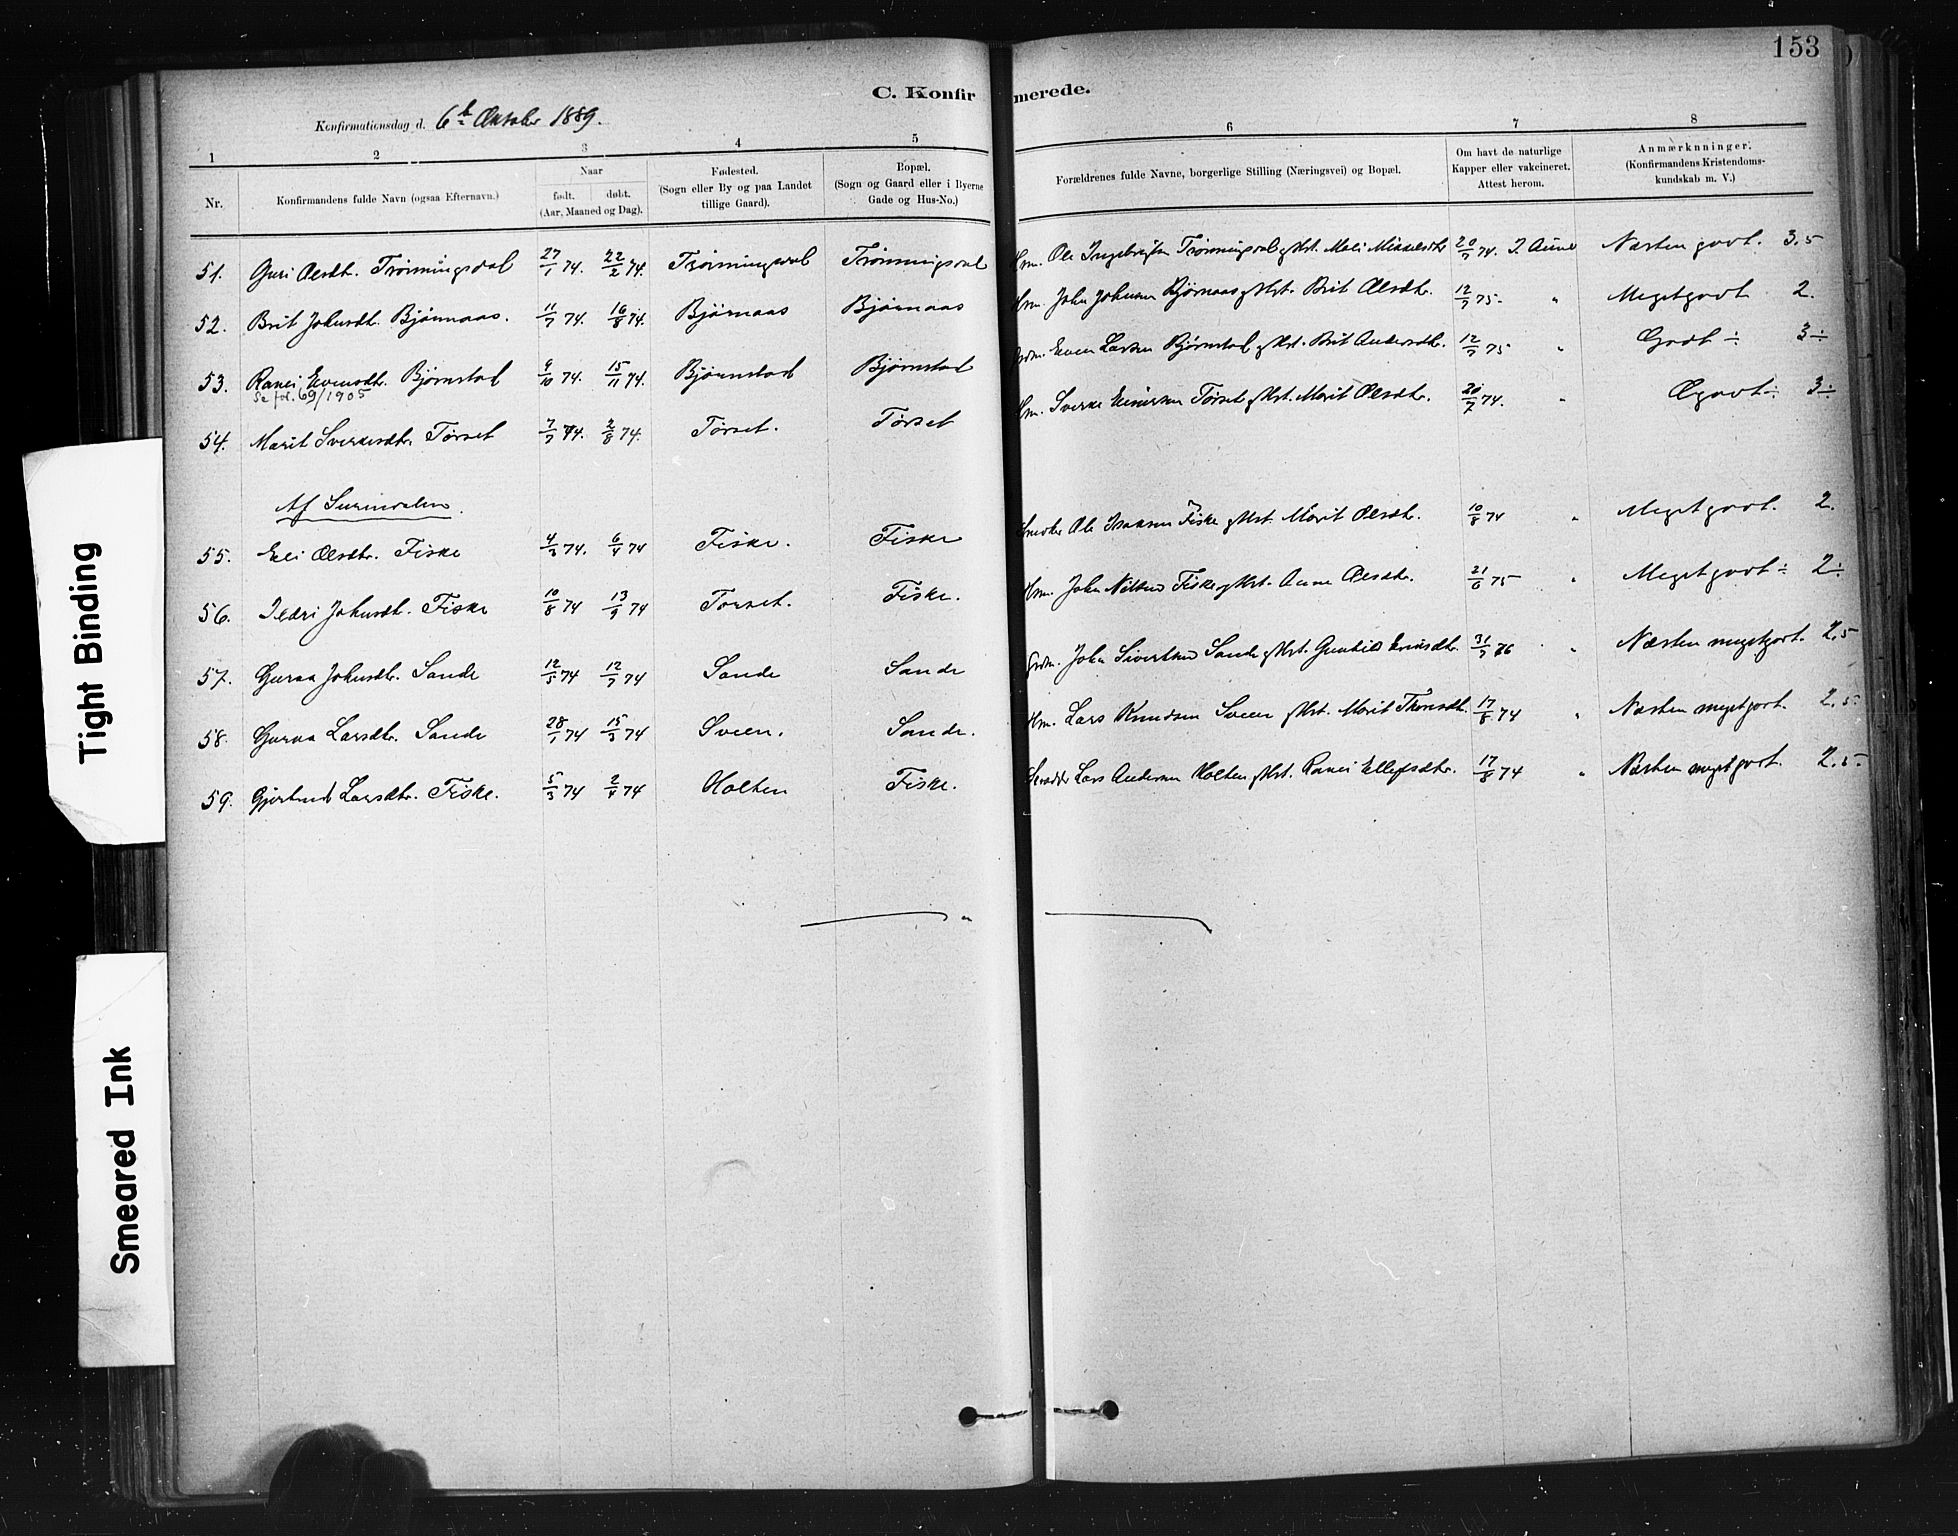 153
C. Konfirmerede.
Konfirmationsdag d. 6te Oktober 1889.
1 2 3 4 5 6 7 8
Nr. Konfirmandens fulde Navn (ogsaa Efternavn.) Naar født. døbt. (Aar, Maaned og Dag). Fødested. (Sogn eller By og paa Landet tillige Gaard). Bopæl. (Sogn og Gaard eller i Byerne Gade og Hus-No.) Forældrenes fulde Navne, borgerlige Stilling (Næringsvei) og Bopæl. Om havt de naturlige Kapper eller vakcineret. Attest herom. Anmærkninger. (Konfirmandens Kristendomskundskab m. V.)
51. Guri Olsdtr. Trønningsdal 27/1 74. 22/2 74. Trønningsdal Trønningsdal Hm. Ole Ingebrigtsn Trønningsdal g Hst. Mali Mikkelsdtr 20/7 74. J. Aune Næsten godt. 3.5
52. Brit Johnsdt. Bjørnaas. 11/7 74. 16/8 74. Bjørnaas Bjørnaas Hm. John Johnsen Bjørnaas g Hst. Brit Olsdtr. 12/7 75. " Meget godt 2.
53. Ranei Evensdtr. Bjørnstad 9/10 74. 15/11 74. Bjørnstad Bjørnstad Grdm. Even Larsen Bjørnstad g Hst. Brit Andersdtr. 12/7 75 " Godt ÷ 3÷
Se fol. 69/1905
54. Marit Sverkesdtr. Tørset 7/7 74. 2/8 74. Tørset. Tørset Hm. Sverke Einersen Tørset g Hst. Marit Olsdtr. 20/7 74. " godt ÷ 3÷
Af Surendalen.
55. Eli Olsdtr. Fiske 4/3 74. 6/4 74 Fiske. Fiske Ole Isaksen Fiske g Hst. Marit Olsdtr. 10/8 74 " Meget godt. 2.
56. Ildri Johnsdt. Fiske 10/8 74 13/9 74 Torset. Fiske. Hm. John Nilsen Fiske g Hst. Anne Olsdtr. 21/6 75 " Meget godt ÷ 2÷
57. Guraa Johnsdtr. Sande 12/5 74 12/7 74 Sande Sande Grdm. John Sivertsen Sande g Hst. Gunhild 31/7 76 " Næsten meget godt. 2.5
58. Guraa Larsdtr. Sande 28/1 74 15/3 74 Sveen. Sande. Hm. Lars Knudsen Sveen g Hst. Marit Thoresdt. 17/8 74 " Næsten meget godt. 2.5
59. Gjertrud Larsdtr. Fiske. 5/3 74 2/4 74 Holten Fiske. Skrædder Lars Andersen Holten g Hst. Ranei Ellefsdtr. 17/8 74 " Næsten meget godt. 2.5
Tight Binding
Smeared Ink